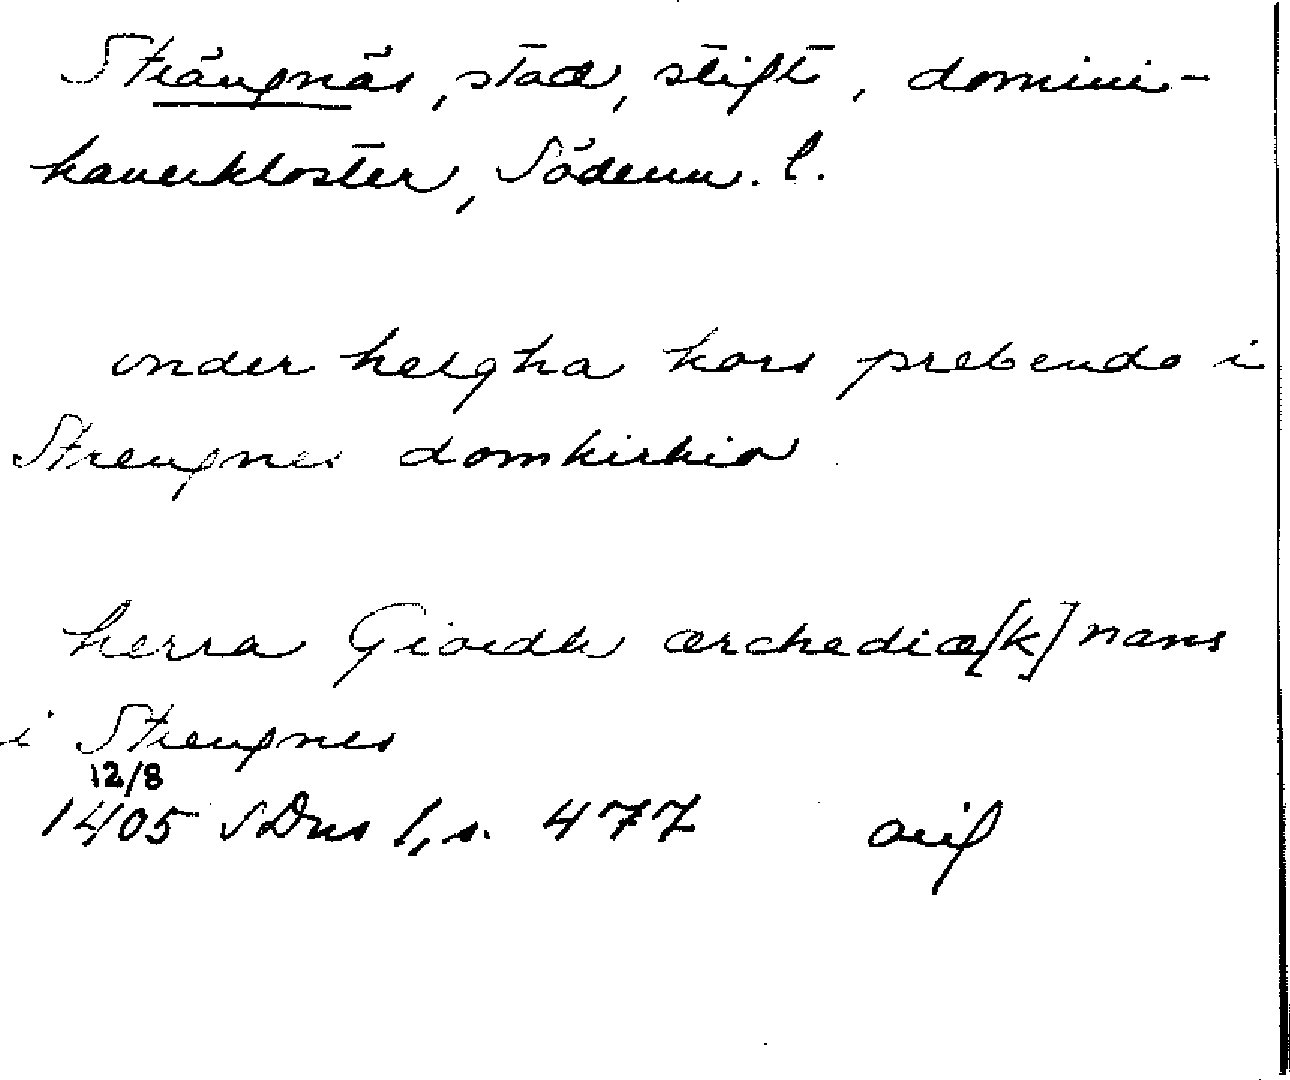 Strängnäs, stad, stift, domini-
kanerkloster, Söderm. l.
vnder helgha kors prebendo i
Strengnes domkirkio
herra Giordh ærchediæ[k]næns
i Strengnes
12/8
1405 SDns 1, s. 477 orig